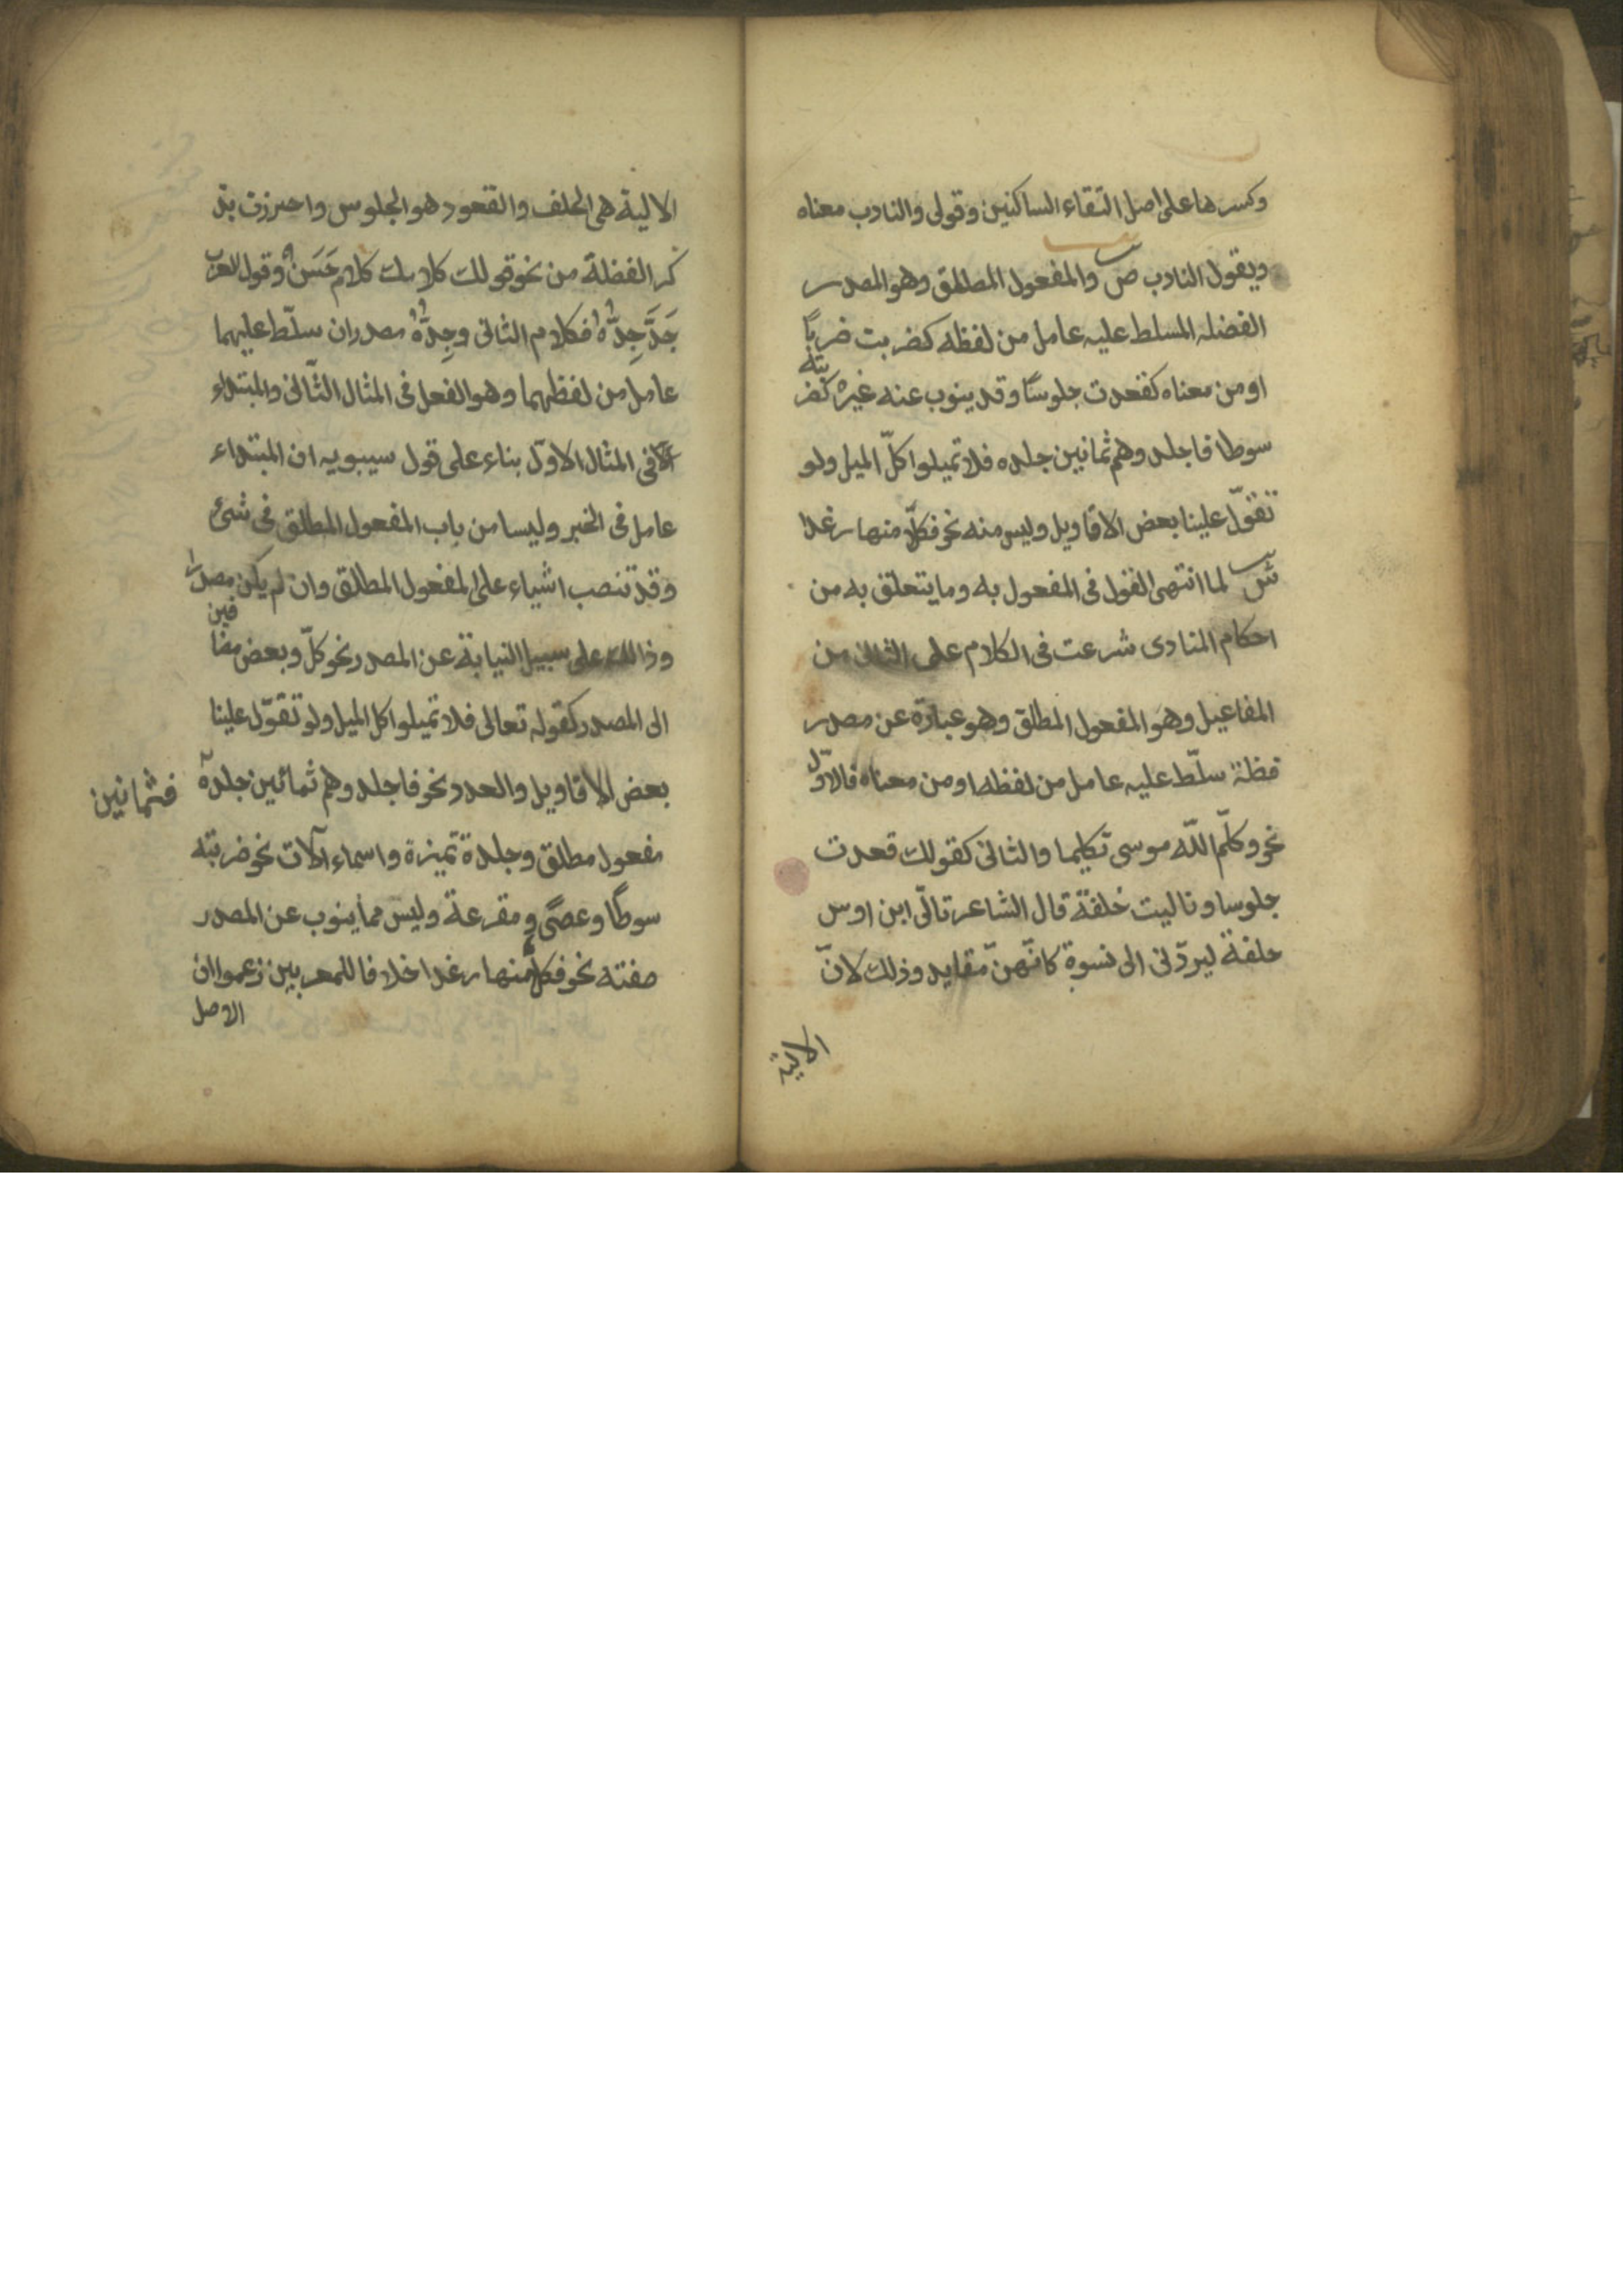 وكسرها على اصل التقاء الساكنين وقولى والنادب معناه
ويقول النادب ص والمفعول المطلق وهو المصدر
الفضله المسلط عليه عامل من لفظه كضربت ضربًا
او من معناه كقعدت جلوسًا وقد ينوب عنه غيره كضر
بته
سوطا فاجلدوهم ثمانين جلده فلا تميلوا كلّ الميل ولو
تقوّل علينا بعض الاقاويل وليس منه نحو فكلا منها رغدا
ش لما انتهى القول فى المفعول به وما يتعلق به من
احكام المنادى شرعت فى الكلام على الثانى من
المفاعيل وهو المفعول المطلق وهو عبارة عن مصدر
فظلة سلّط عليه عامل من لفظه او من معناه فالاوّل
نحو وكلّم اللّه موسى تكليما والثانى كقولك قعدت
جلوسا وتاليت حلفة قال الشاعر تالّى ابن اوس
حلفة ليردّنى الى نسوة كانّهنّ مقايد وذلك لانّ
الالية
الالية هى الحلف والقعود هو الجلوس واحترزت بذ
كر الفظلة من نحو قولك كلامك كلام حَسَنٌ وقول العرب
جَدَّ جِدُّهُ فكلام الثانى وجِدُّهُ مصدران سلّط عليهما
عامل من لفظهما وهو الفعل فى المثال الثّانى والمبتداء
فى المثال الاوّل بناء على قول سيبويه ان المبتداء
عامل فى الخبر وليسا من باب المفعول المطلق فى شئ
وقد تنصب اشياء على المفعول المطلق وان لم يكن مصدرا
وذالك على سبيل النيابة عن المصدر نحو كلّ وبعض مضا
فين
الى المصدر كقوله تعالى فلا تميلوا كل الميل ولو تقوّل علينا
بعض الاقاويل والعدد نحو فاجلدوهم ثمانين جلدة
فثمانين
مفعول مطلق وجلدة تميزة واسماء الآلات نحو ضربته
سوطًا وعصًى و مقرعة وليس مما ينوب عن المصدر
صفته نحو فكلا منها رغدا خلافا للمعربين زعموا ان
الاصل